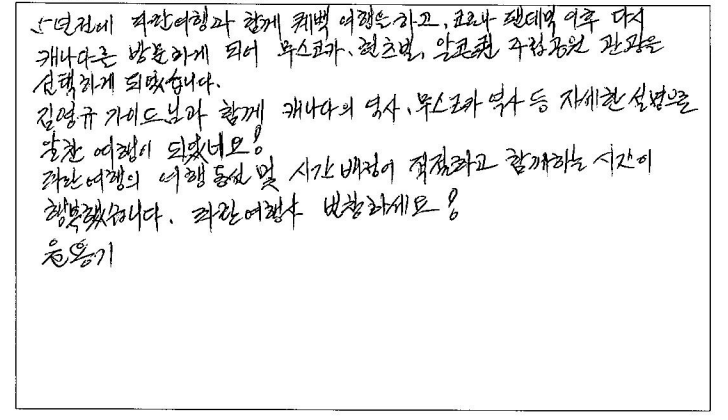 5년전에 파란여행과 함께 퀘백 여행을 하고, 코로나 팬데믹 이후 다시
캐나다를 방문하게 되어 무스코카, 헌츠빌, 알곤퀸 주립공원 관광을
선택하게 되었습니다.
김영규 가이드님과 함께 캐나다의 역사, 무스코카 역사 등 자세한 설명으로
알찬 여행이 되었네요!
파란여행의 여행 동선 및 시간 배정이 적절하고 함께하는 시간이
행복했습니다. 파란여행사 번창하세요!